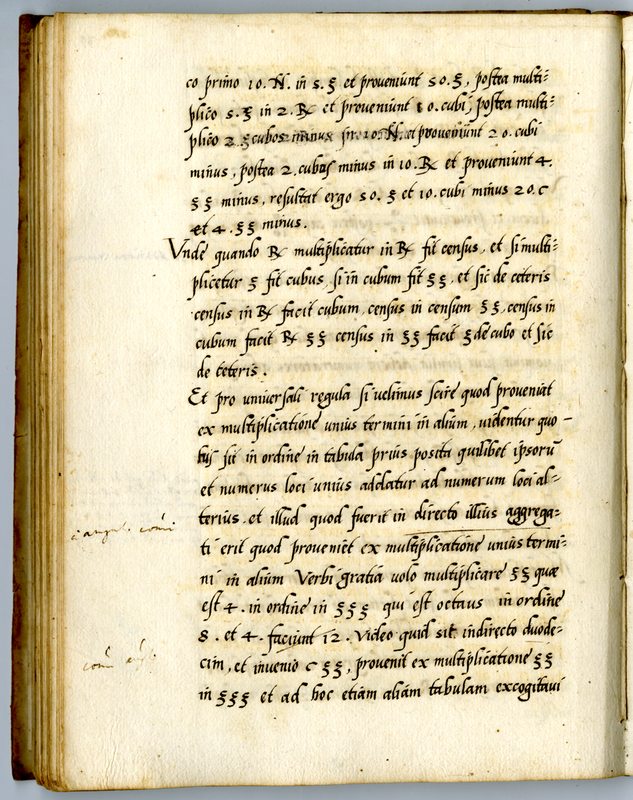 co primo 10. N. in 5. ʒ et proveniunt 50. ʒ, postea multi=
plico 5. ʒ in 2. ℞ et proveniunt 10. cubi, postea multi=
plico 2. cubos minus in 10. N. et proveniunt 20. cubi
minus, postea 2. cubus minus in 10. ℞ et proveniunt 4.
ʒ ʒ minus, resultat ergo 50. ʒ et 10. cubi minus 20. c
et 4. ʒʒ minus.
Vnde quando ℞ multiplicatur in ℞ fit census, et si multi=
plicetur ʒ fit cubus, si in cubum fit ʒʒ, et sic de ceteris
census in ℞ facit cubum, census in censum ʒʒ, census in
cubum facit ℞ ʒʒ census in ʒʒ facit ʒ de cubo et sic
de ceteris.
Et pro universali regula si velimus scire quod proveniat
ex multiplicatione unius termini in alium, videntur quo –
tus sit in ordine in tabula prius posita quilibet ipsorū
et numerus loci unius addatur ad numerum loci al=
terius. et illud quod fuerit in directo illius aggrega=
ti erit quod proveniet ex multiplicatione unius termi=
ni in alium Verbi gratia volo multiplicare ʒʒ quæ
est 4. in ordine in ʒʒʒ qui est octaus in ordine
8. et 4. faciunt 12. Video quid sit indirecto duode=
cim, et invenio c ʒʒ, provenit ex multiplicatione ʒʒ
in ʒʒʒ et ad hoc etiam aliam tabulam excogitavi